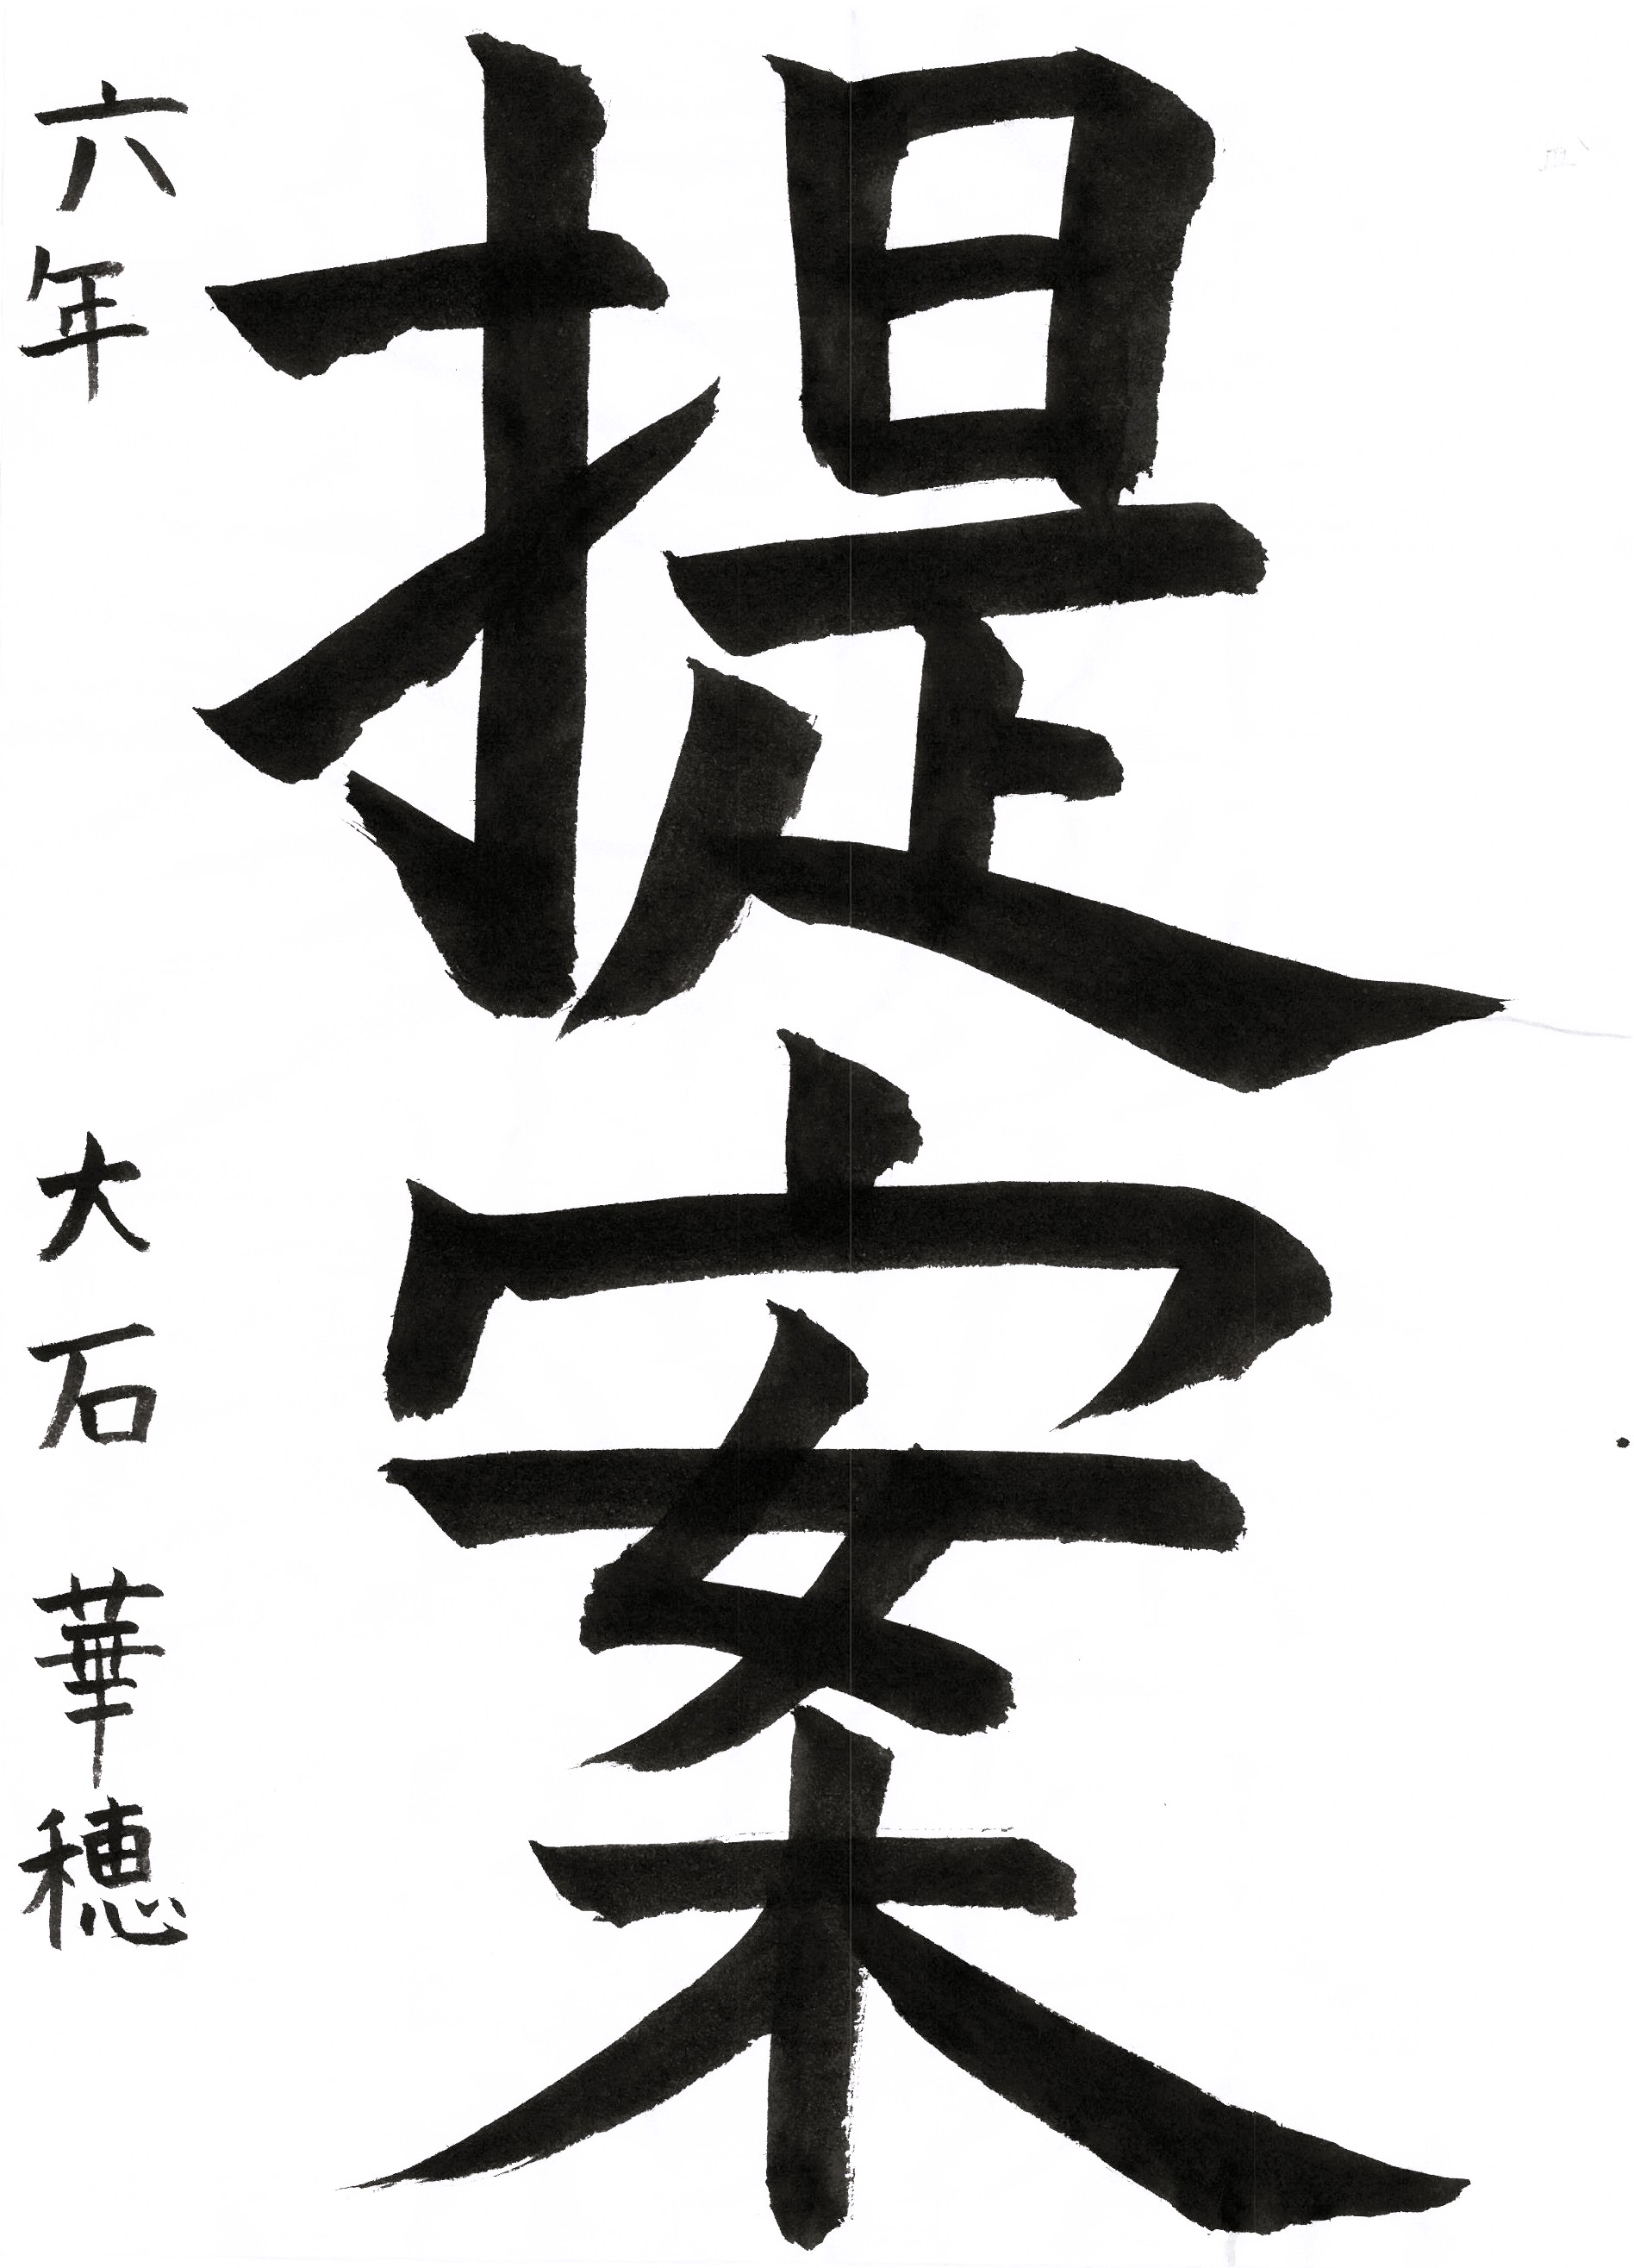 提案
六年 大石華穂